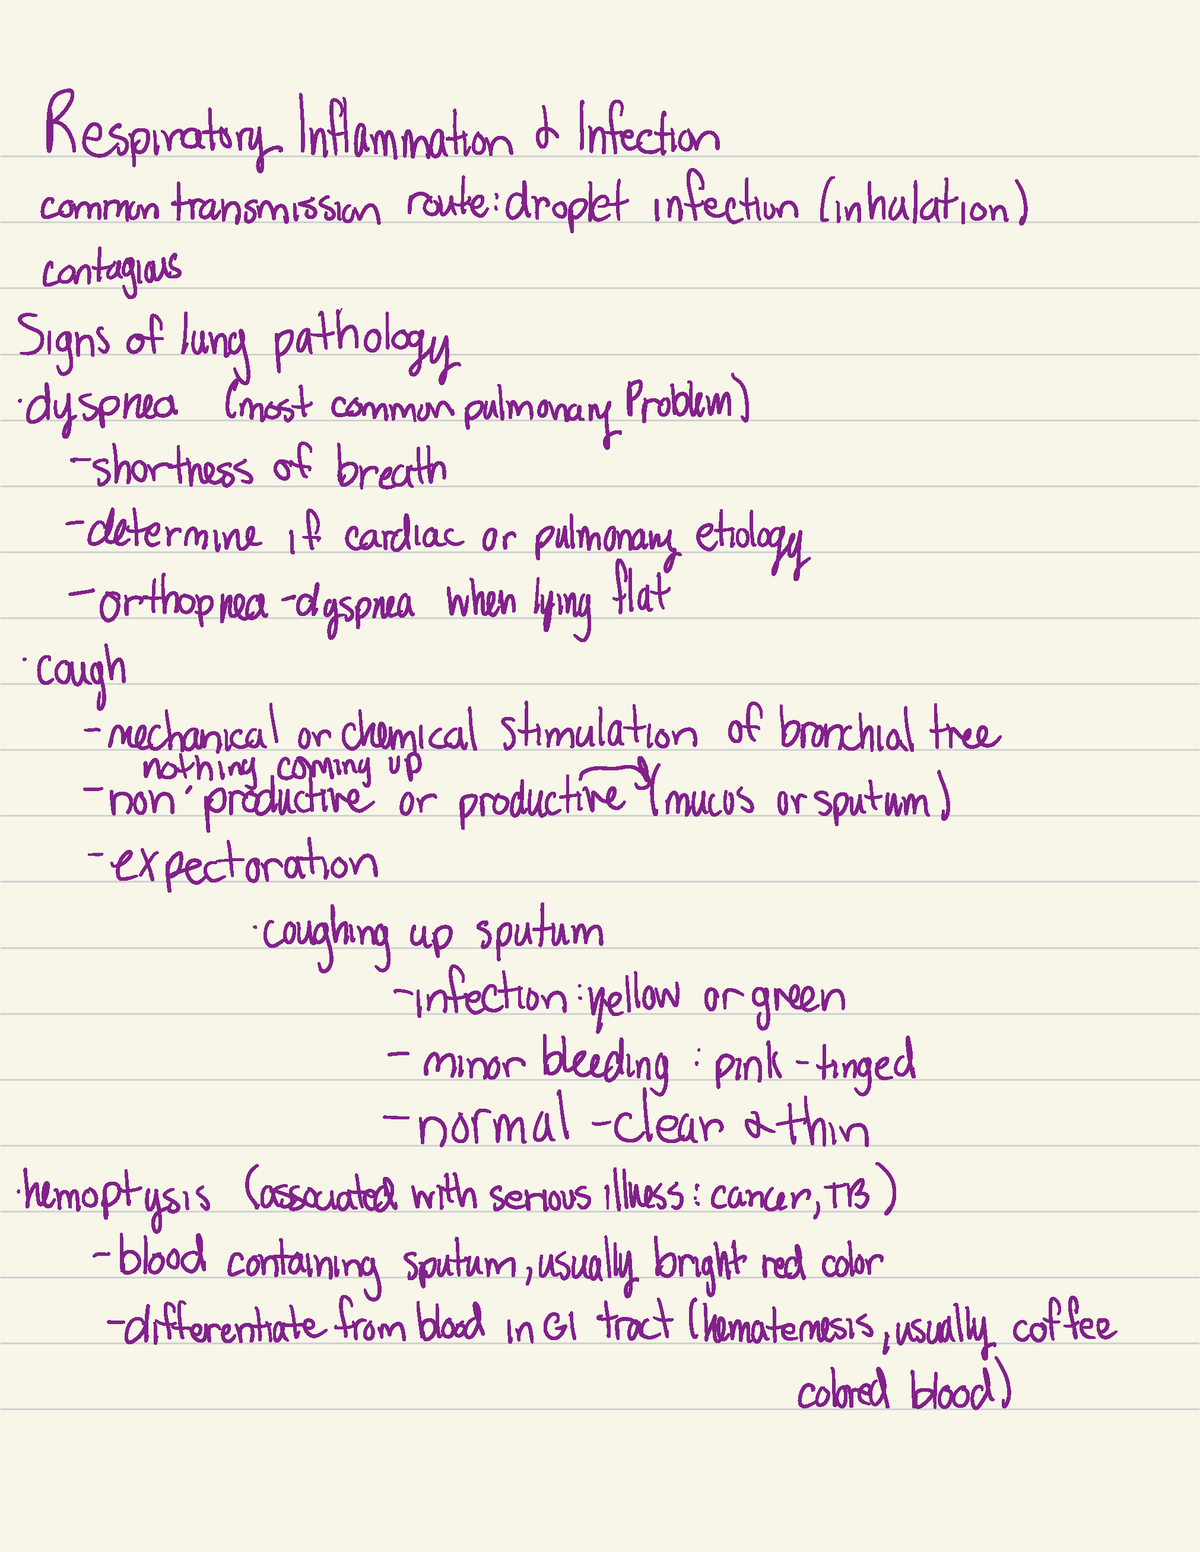 Respiratory Inflammation & Infection
common transmission route: droplet infection (inhalation)
contagious
Signs of lung pathology
·dyspnea (most common pulmonary Problem)
-shortness of breath
-determine if cardiac or pulmonary etiology
-orthopnea -dyspnea when lying flat
·cough
-mechanical or chemical stimulation of bronchial tree
nothing coming up
-non productive or productive → (mucos or sputum)
-expectoration
·coughing up sputum
-infection: yellow or green
- minor bleeding : pink -tinged
-normal -clear & thin
·hemoptysis (associated with serious illness: cancer, TB)
-blood containing sputum, usually bright red color
-differentiate from blood in GI tract (hematemesis, usually coffee
colored blood)